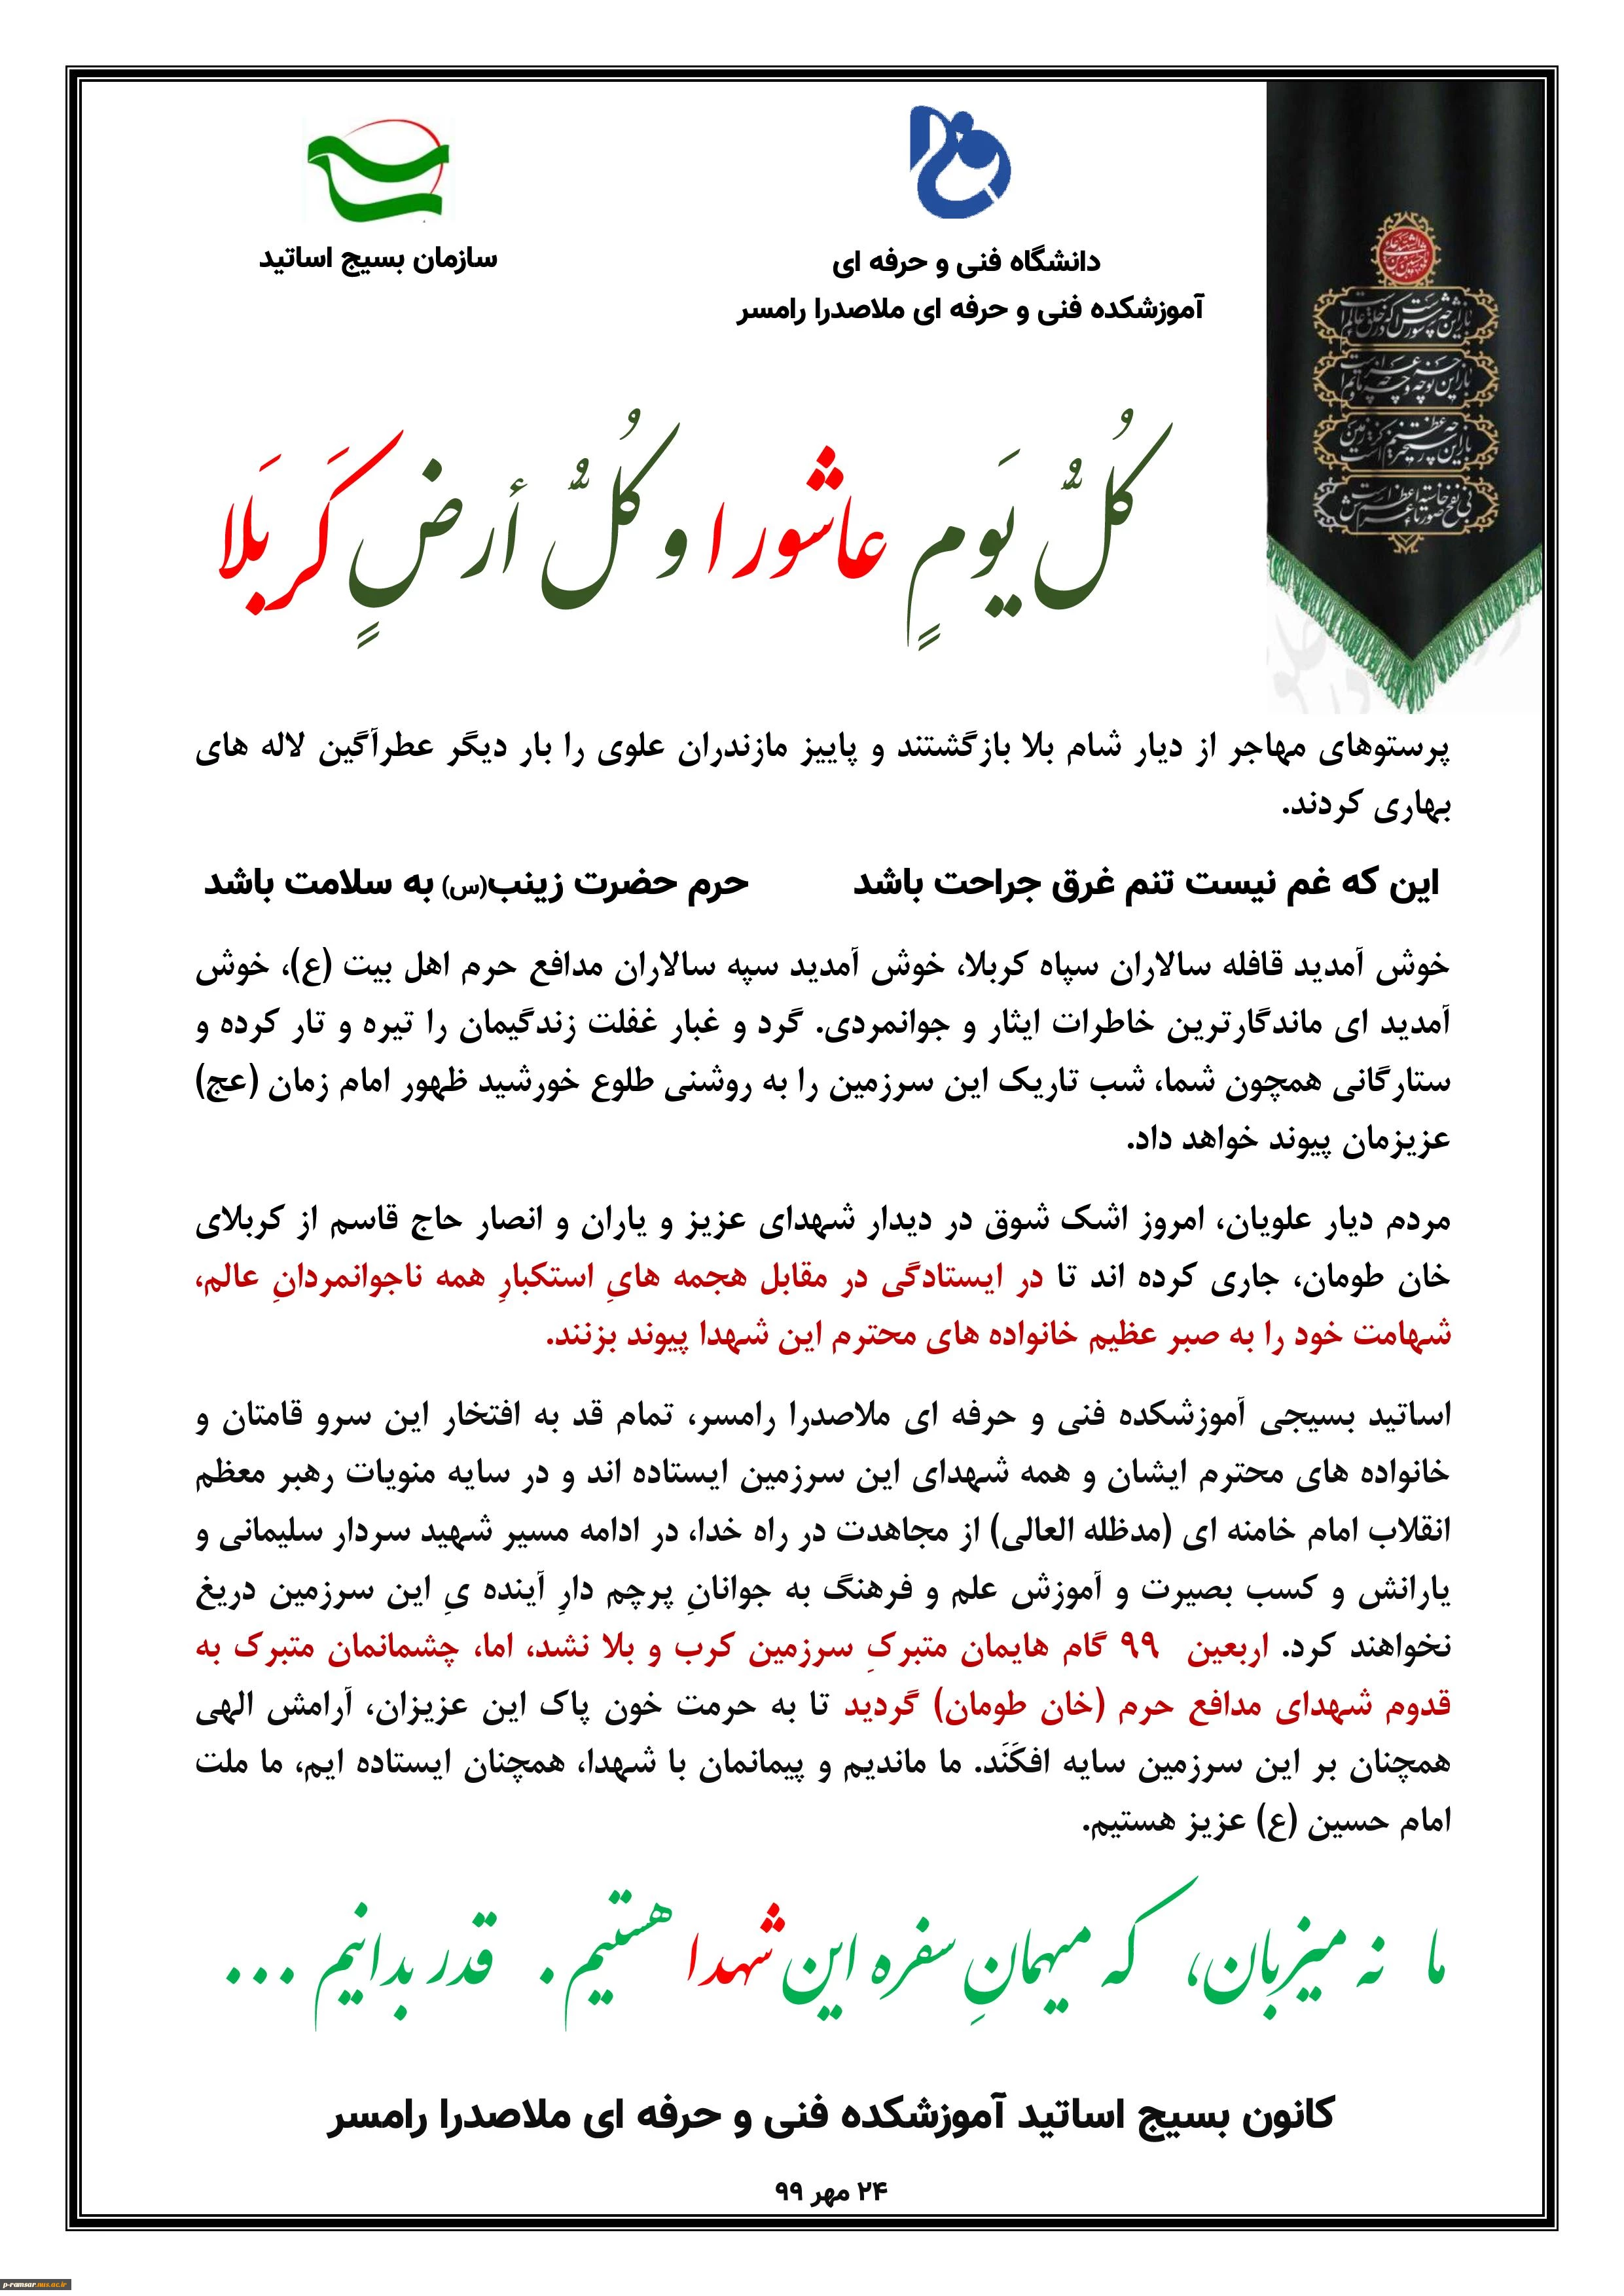 سازمان بسیج اساتید
دانشگاه فنی و حرفه ای
آموزشکده فنی و حرفه ای ملاصدرا رامسر
باز این چه شورش است که در خلق عالم است
باز این چه نوحه و چه عزا و چه ماتم است
باز این چه رستخیز عظیم است کز زمین
بی نفخ صور خاسته تا عرش اعظم است
کُلُّ یَومٍ عاشورا و کُلُّ أرضٍ کَربَلَا
پرستوهای مهاجر از دیار شام بلا بازگشتند و پاییز مازندران علوی را بار دیگر عطرآگین لاله های
بهاری کردند.
این که غم نیست تنم غرق جراحت باشد حرم حضرت زینب(س) به سلامت باشد
خوش آمدید قافله سالاران سپاه کربلا، خوش آمدید سپه سالاران مدافع حرم اهل بیت (ع)، خوش
آمدید ای ماندگارترین خاطرات ایثار و جوانمردی. گرد و غبار غفلت زندگیمان را تیره و تار کرده و
ستارگانی همچون شما، شب تاریک این سرزمین را به روشنی طلوع خورشید ظهور امام زمان (عج)
عزیزمان پیوند خواهد داد.
مردم دیار علویان، امروز اشک شوق در دیدار شهدای عزیز و یاران و انصار حاج قاسم از کربلای
خان طومان، جاری کرده اند تا در ایستادگی در مقابل هجمه هایِ استکبارِ همه ناجوانمردانِ عالم،
شهامت خود را به صبر عظیم خانواده های محترم این شهدا پیوند بزنند.
اساتید بسیجی آموزشکده فنی و حرفه ای ملاصدرا رامسر، تمام قد به افتخار این سرو قامتان و
خانواده های محترم ایشان و همه شهدای این سرزمین ایستاده اند و در سایه منویات رهبر معظم
انقلاب امام خامنه ای (مدظله العالی) از مجاهدت در راه خدا، در ادامه مسیر شهید سردار سلیمانی و
یارانش و کسب بصیرت و آموزش علم و فرهنگ به جوانانِ پرچم دارِ آینده یِ این سرزمین دریغ
نخواهند کرد. اربعین ۹۹ گام هایمان متبرکِ سرزمین کرب و بلا نشد، اما، چشمانمان متبرک به
قدوم شهدای مدافع حرم (خان طومان) گردید تا به حرمت خون پاک این عزیزان، آرامش الهی
همچنان بر این سرزمین سایه افکَنَد. ما ماندیم و پیمانمان با شهدا، همچنان ایستاده ایم، ما ملت
امام حسین (ع) عزیز هستیم.
ما نه میزبان، که میهمانِ سفره این شهدا هستیم. قدر بدانیم ...
کانون بسیج اساتید آموزشکده فنی و حرفه ای ملاصدرا رامسر
۲۴ مهر ۹۹
p-ramsar.nus.ac.ir